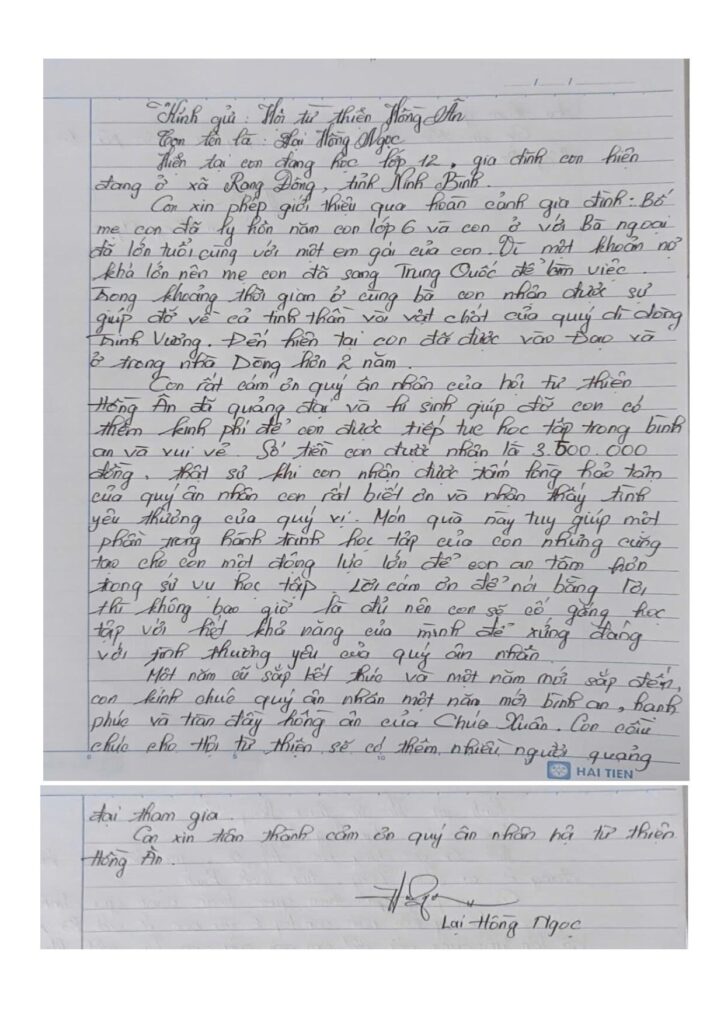 Kính gửi : Hội từ thiện Hồng Ân
Con tên là : Lại Hồng Ngọc
Hiện tại con đang học lớp 12, gia đình con hiện
đang ở xã Rạng Đông, tỉnh Ninh Bình.
Con xin phép giới thiệu qua hoàn cảnh gia đình : Bố
mẹ con đã ly hôn năm con lớp 6 và con ở với Bà ngoại
đã lớn tuổi cùng với một em gái của con. Vì một khoản nợ
khá lớn nên mẹ con đã sang Trung Quốc để làm việc.
Trong khoảng thời gian ở cùng bà con nhận được sự
giúp đỡ về cả tinh thần và vật chất của quý dì dòng
Trinh Vương. Đến hiện tại con đã được vào Đạo và
ở trong nhà Dòng hơn 2 năm.
Con rất cám ơn quý ân nhân của hội từ thiện
Hồng Ân đã quảng đại và hi sinh giúp đỡ con có
thêm kinh phí để con được tiếp tục học tập trong bình
an và vui vẻ. Số tiền con được nhận là 3.500.000
đồng, thật sự khi con nhận được tấm lòng hảo tâm
của quý ân nhân con rất biết ơn và nhận thấy tình
yêu thương của quý vị. Món quà này tuy giúp một
phần trong hành trình học tập của con nhưng cũng
tạo cho con một động lực lớn để con an tâm hơn
trong sứ vụ học tập. Lời cám ơn để nói bằng lời
thì không bao giờ là đủ nên con sẽ cố gắng học
tập với hết khả năng của mình để xứng đáng
với tình thương yêu của quý ân nhân.
Một năm cũ sắp kết thúc và một năm mới sắp đến,
con kính chúc quý ân nhân một năm mới bình an, hạnh
phúc và tràn đầy hồng ân của Chúa Xuân. Con cầu
chúc cho hội từ thiện sẽ có thêm nhiều người quảng
HẢI TIẾN
đại tham gia.
Con xin trân thành cảm ơn quý ân nhân hội từ thiện
Hồng Ân.
Lại Hồng Ngọc